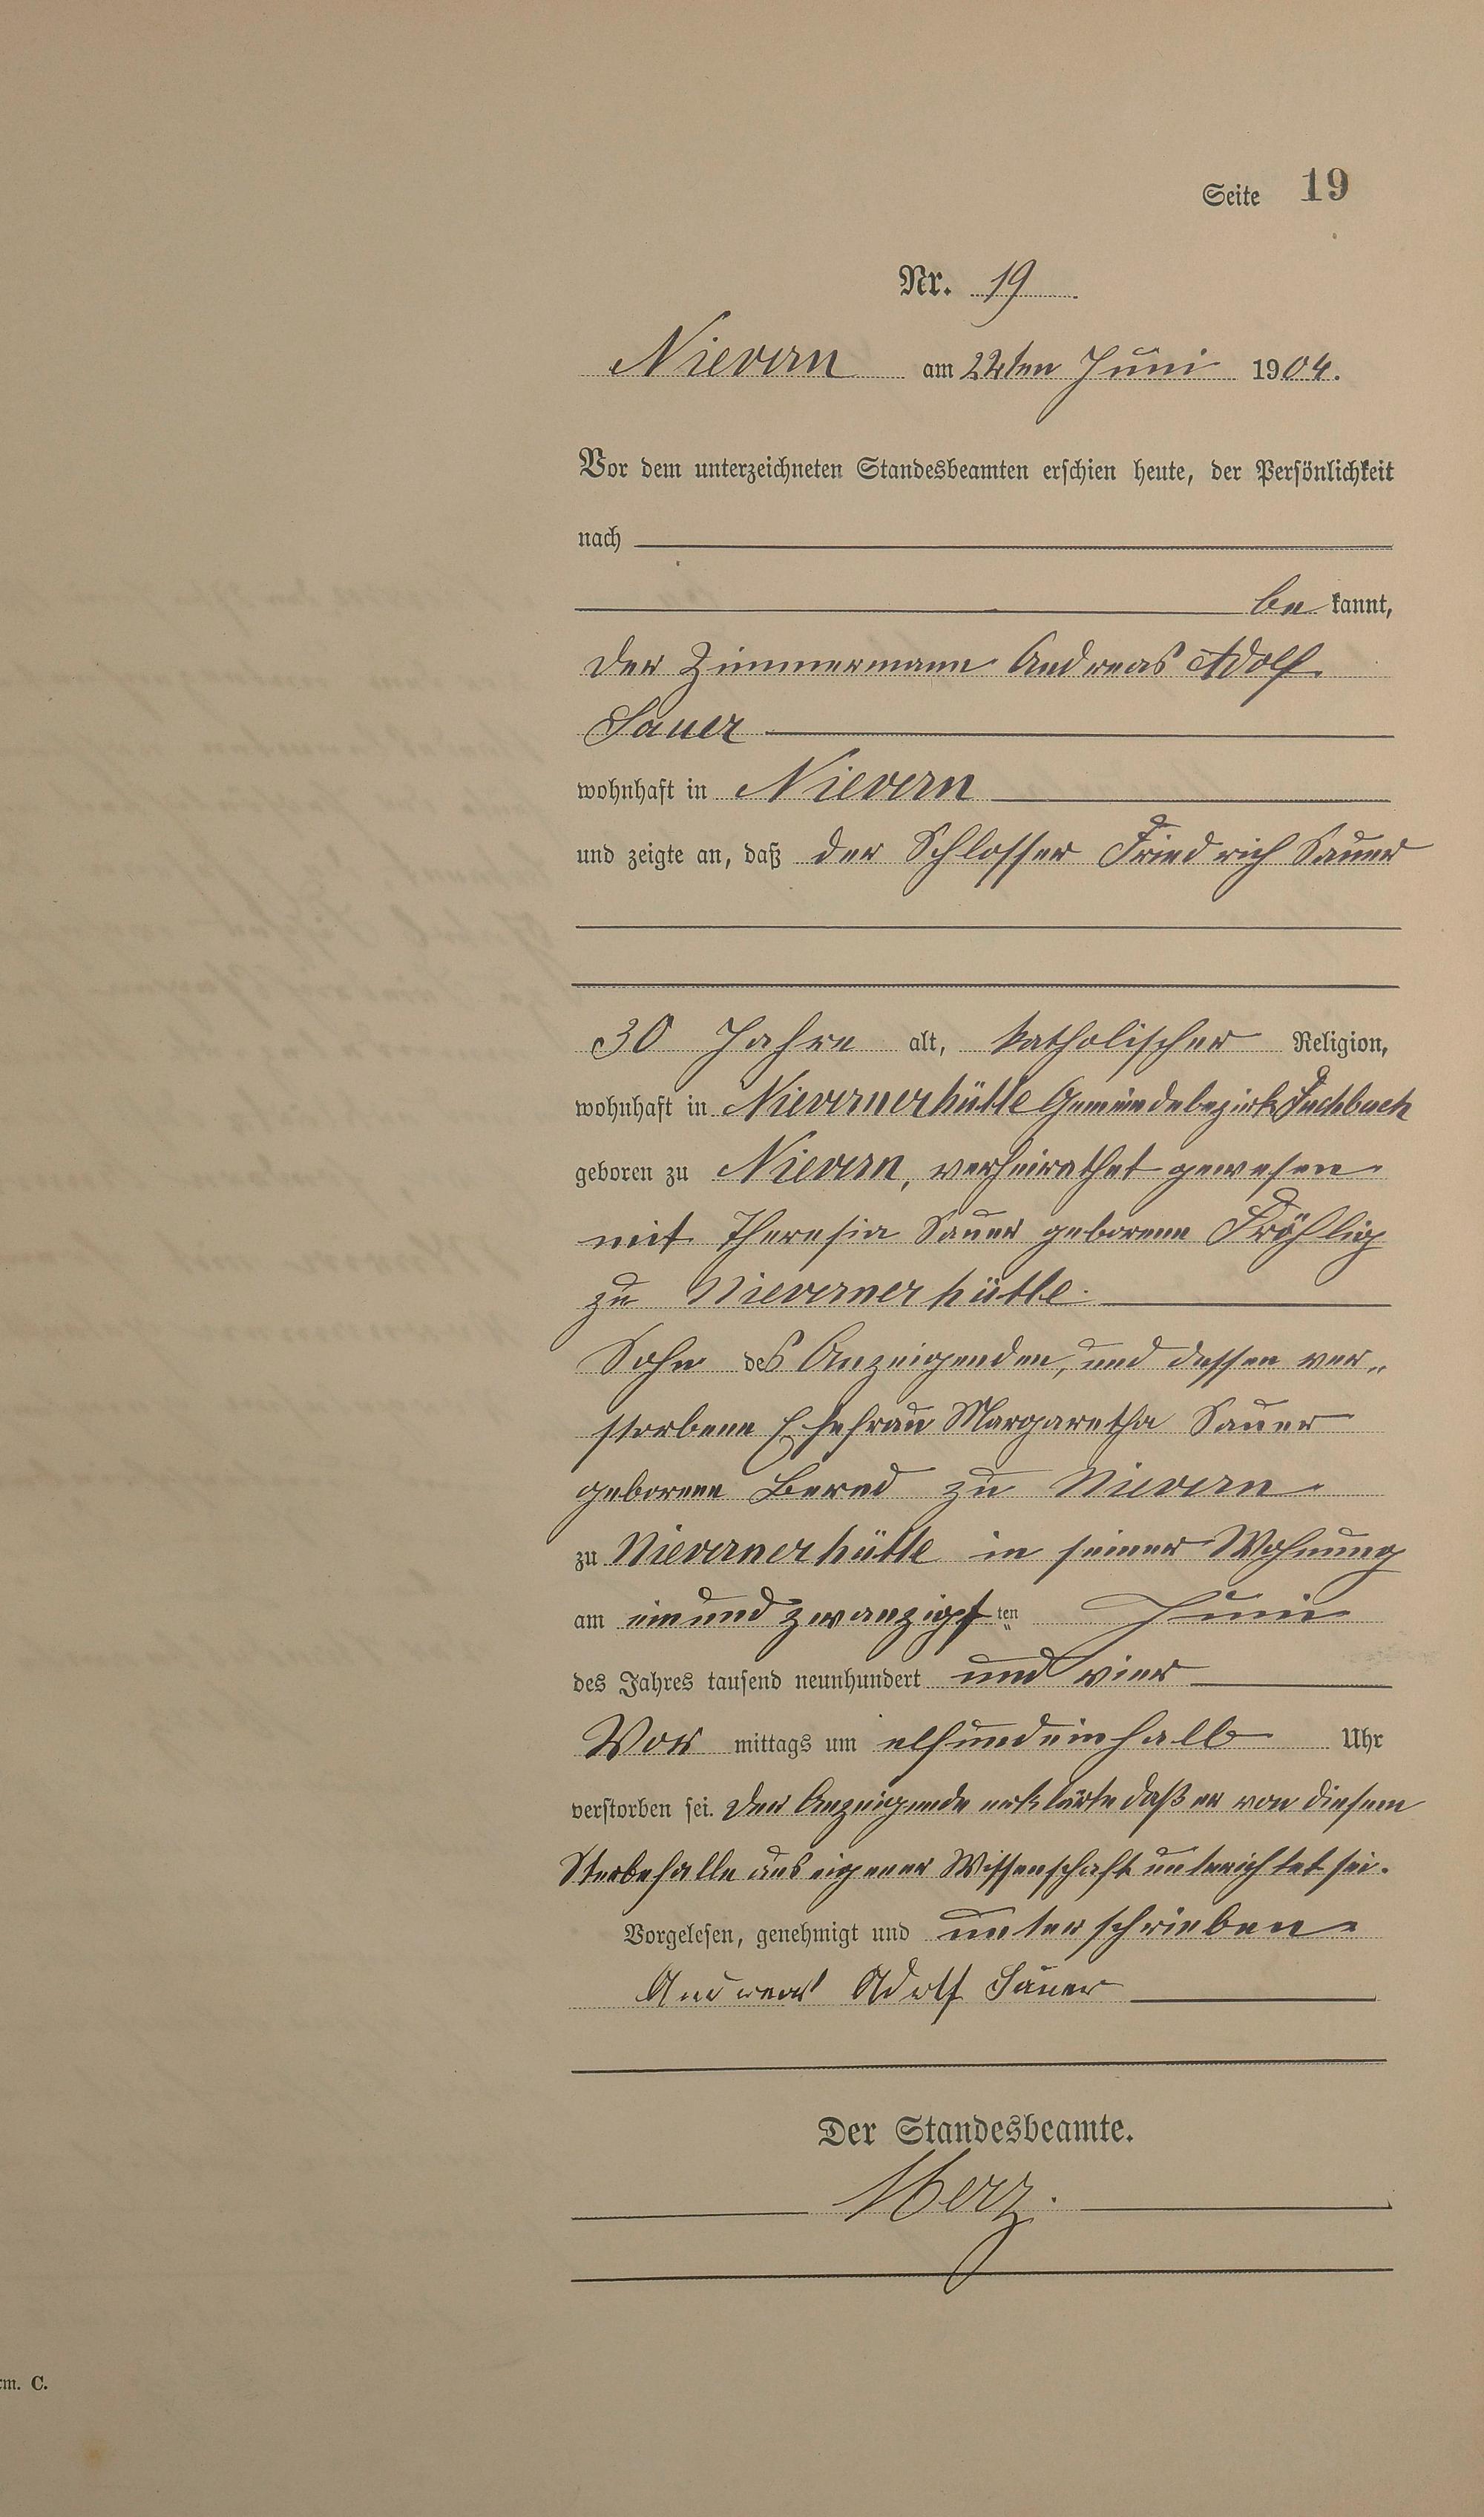 Seite 19
Nr. 19
Nievern am 22ten Juni 1904.
Vor dem unterzeichneten Standesbeamten erschien heute, der Persönlichkeit
nach
be kannt,
der Zimmermann Andreas Adolf
Sauer
wohnhaft in Nievern
und zeigte an, daß der Schlosser Friedrich Sauer
30 Jahre alt, katholischer Religion,
wohnhaft in Nievernerhütte Gemeindebezirk Fachbach
geboren zu Nievern, verheirathet gewesen
mit Theresia Sauer geborene Fröhlig
zu Nievernerhütte
Sohn des Anzeigenden, und dessen ver„
storbene Ehefrau Margaretha Sauer
geborene Bernd zu Nievern
zu Nievernerhütte in seiner Wohnung
am einundzwanzigsten Juni
des Jahres tausend neunhundert und vier
Vor mittags um elfundeinhalb Uhr
verstorben sei. Der Anzeigende erklärte daß er von diesem
Sterbefalle aus eigener Wissenschaft unterrichtet sei.
Vorgelesen, genehmigt und unterschrieben
Andreas Adolf Sauer
Der Standesbeamte.
Merz.
rm. C.